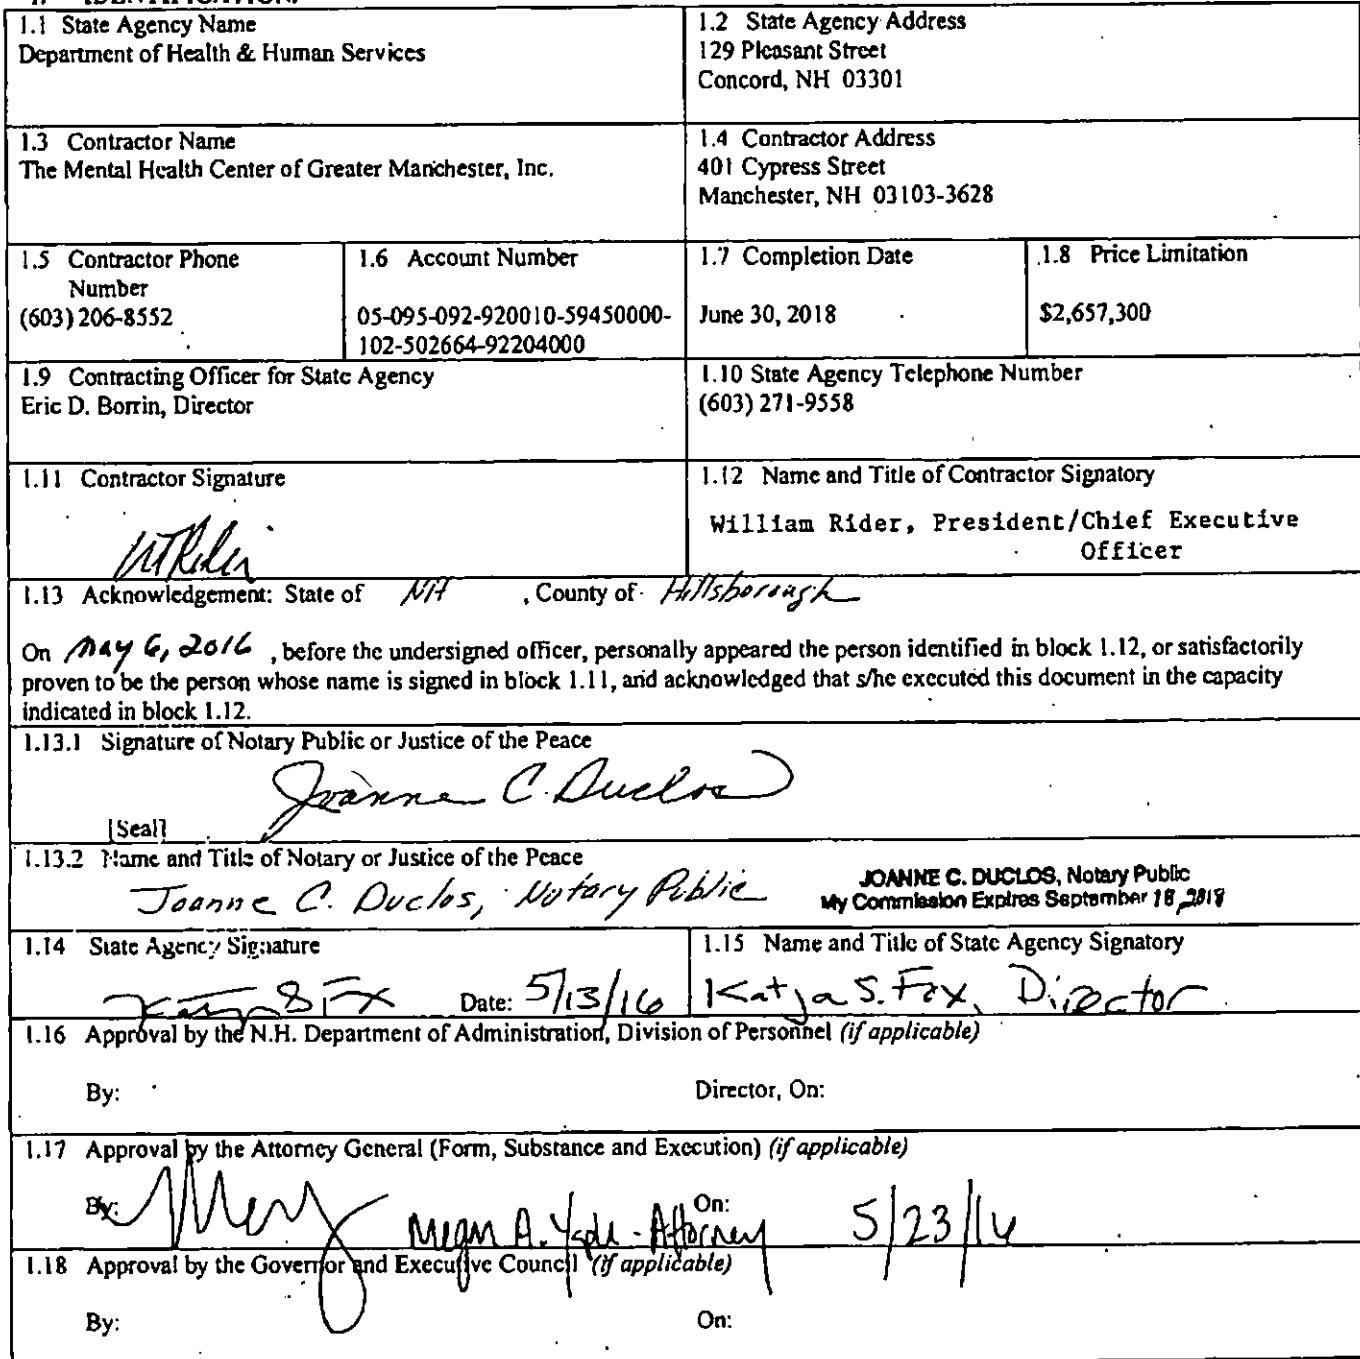 1. IDENTIFICATION.
1.1 State Agency Name
Department of Health & Human Services
1.2 State Agency Address
129 Pleasant Street
Concord, NH 03301
1.3 Contractor Name
The Mental Health Center of Greater Manchester, Inc.
1.4 Contractor Address
401 Cypress Street
Manchester, NH 03103-3628
1.5 Contractor Phone
Number
(603) 206-8552
1.6 Account Number
05-095-092-920010-59450000-
102-502664-92204000
1.7 Completion Date
June 30, 2018
1.8 Price Limitation
$2,657,300
1.9 Contracting Officer for State Agency
Eric D. Borrin, Director
1.10 State Agency Telephone Number
(603) 271-9558
1.11 Contractor Signature
1.12 Name and Title of Contractor Signatory
William Rider, President/Chief Executive
Officer
1.13 Acknowledgement: State of NH , County of Hillsborough
On May 6, 2016 , before the undersigned officer, personally appeared the person identified in block 1.12, or satisfactorily
proven to be the person whose name is signed in block 1.11, and acknowledged that s/he executed this document in the capacity
indicated in block 1.12.
1.13.1 Signature of Notary Public or Justice of the Peace
Joanne C. Duclos
[Seal]
1.13.2 Name and Title of Notary or Justice of the Peace
Joanne C. Duclos, Notary Public
JOANNE C. DUCLOS, Notary Public
My Commission Expires September 18,
1.14 State Agency Signature
Date: 5/13/16
1.15 Name and Title of State Agency Signatory
Katja S. Fox, Director
1.16 Approval by the N.H. Department of Administration, Division of Personnel (if applicable)
By:
Director, On:
1.17 Approval by the Attorney General (Form, Substance and Execution) (if applicable)
By: A. - Attorney On: 5/23/16
1.18 Approval by the Governor and Executive Council (if applicable)
By:
On: